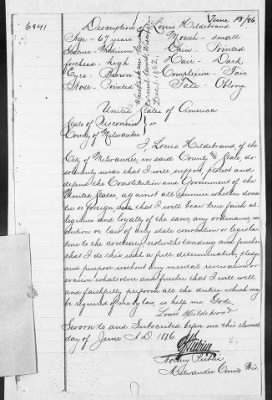 6941
June 18/86
Description of Louis Hildebrand
Age - 67 years
Mouth - small
Stature - Medium
Chin - Pointed
forehead - high
Hair - Dark
Eyes - Brown
Complexion - Fair
Nose - Pointed
Face - Oblong
United States of America
State of Wisconsin
County of Milwaukee
I, Louis Hildebrand, of the
City of Milwaukee, in said County & State, do
solemnly swear that I will support, protect and
defend the Constitution and Government of the
United States, against all enemies whether domes-
tic or foreign, and that I will bear true faith, al-
legiance and loyalty to the same, any ordinance, res-
olution or law of any state convention or legisla-
ture to the contrary notwithstanding and further
that I do this with a full determination, pledge
and purpose without any mental reservation or
evasion whatsoever and further that I will well
and faithfully perform all the duties which may
be required of me by law, so help me God.
Louis Hildebrand
Sworn to and Subscribed before me this eleventh
day of June A.D 1886
Notary Public
Milwaukee County Wis